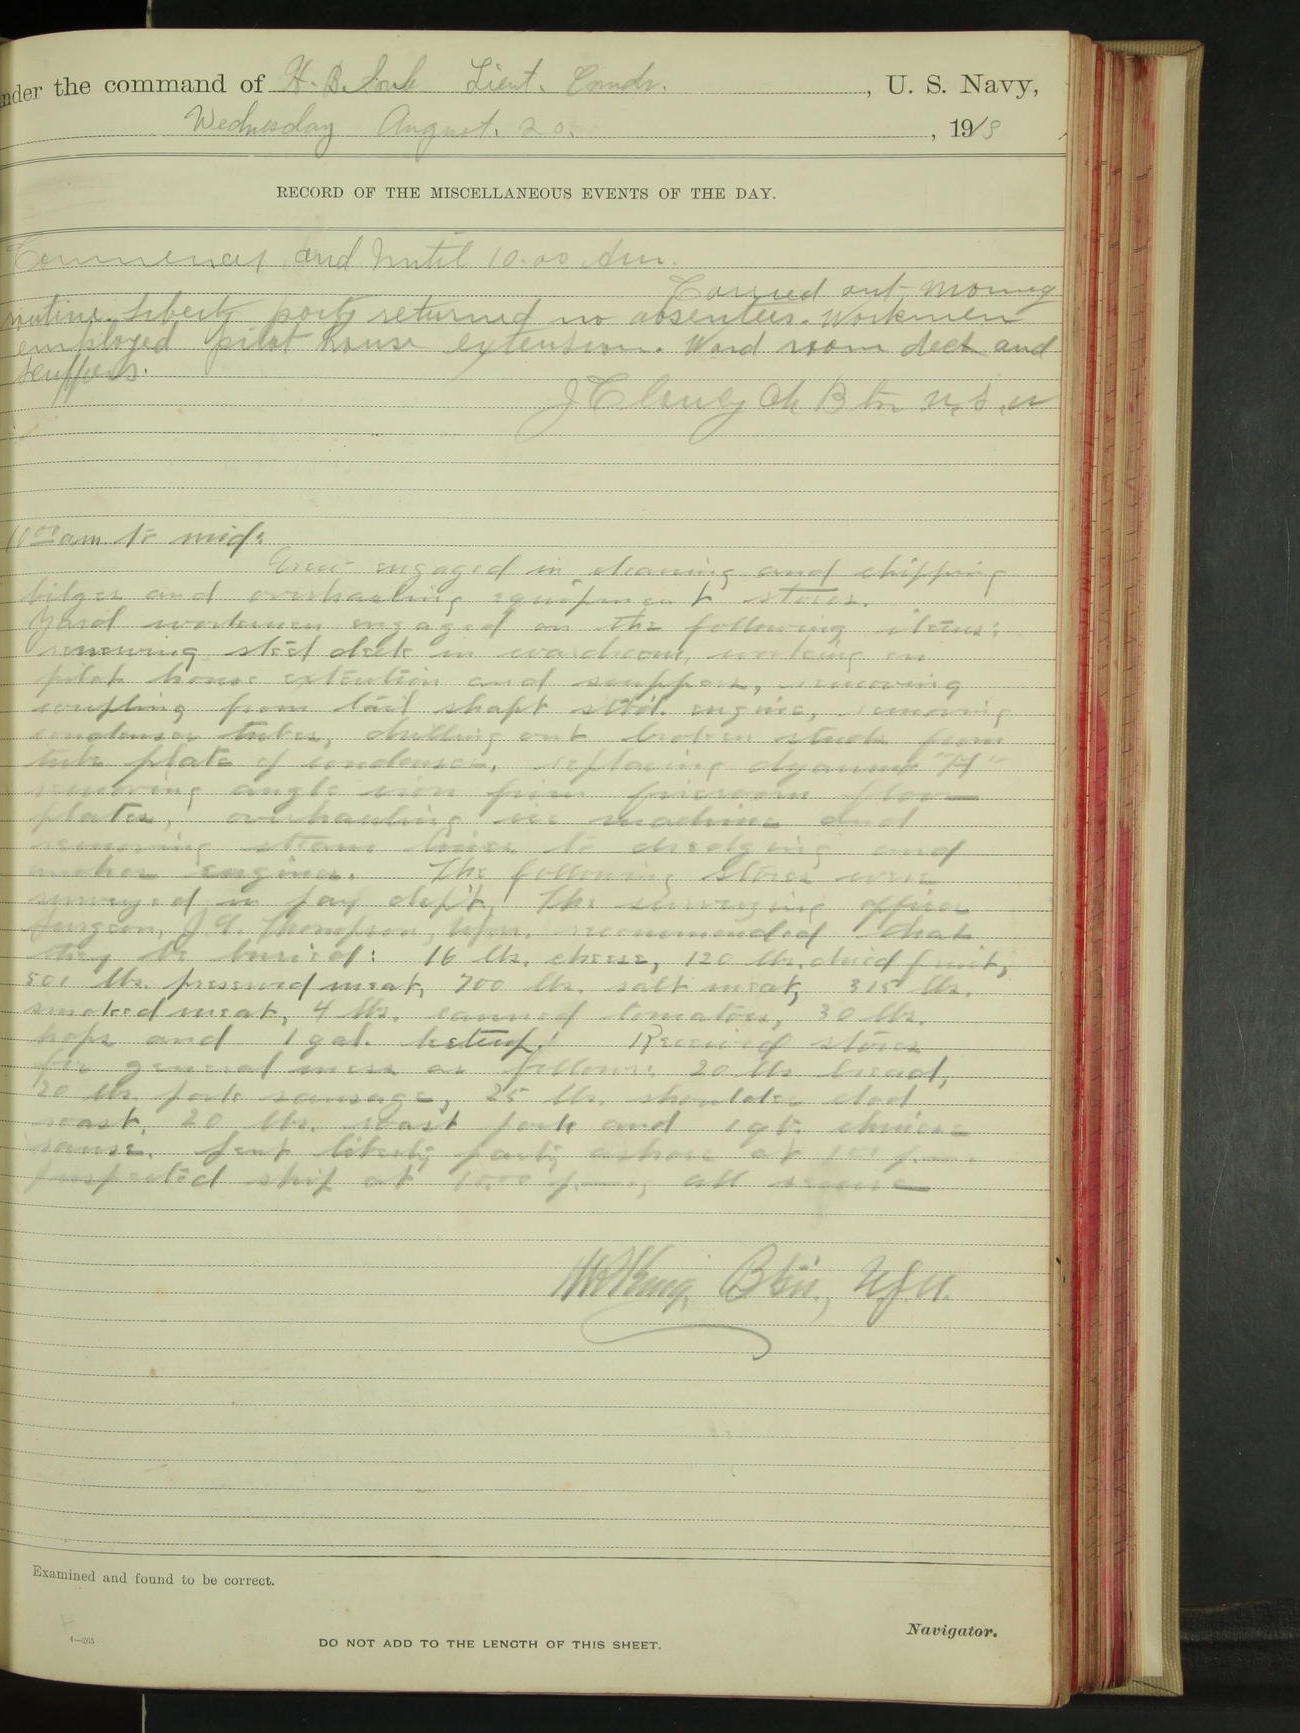 nder the command of H. B. Soule Lieut. Comdr. , U. S. Navy,
Wednesday August. 20. , 1913
RECORD OF THE MISCELLANEOUS EVENTS OF THE DAY.
Commences and Until 10.00 Am.
Carried out morning
routine. Liberty party returned no absentees. Workmen
employed pilot house extension. Ward room deck and
scuppers.
Ch Btn U.S.N
10 00 am to mid:
Crew engaged in cleaning and chipping
bilges and overhauling equipment stores.
Yard workmen engaged on the following items:
renewing steel deck in wardroom, working on
pilot house extention and scuppers, removing
coupling from tail shaft stbd. engine, removing
condenser tubes, drilling out broken studs from
tube plate of condenser, replacing dynamo
removing angle iron from fireroom floor
plates, overhauling ice machine and
removing steam lines to dredging and
anchor engines. The following stores were
surveyed in pay dep't. The surveying officer
Surgeon, J. G. Thompson, recommended that
they be buried: 16 lbs. cheese, 120 lbs. dried fruit,
501 lbs. preserved meat, 700 lbs. salt meat, 315 lbs.
smoked meat, 4 lbs. canned tomatoes, 30 lbs.
hops and 1 gal. ketchup. Received stores
for general mess as follows: 20 lbs bread,
20 lbs. pork sausage, 25 lbs. shoulder clod
roast, 20 lbs. roast pork and 1 qt. chinese
sause. Sent liberty party ashore at 1 00 p.m.
Inspected ship at 10.00 p.m., all secure
King, Btn., U.S.N.
Examined and found to be correct.
Navigator.
DO NOT ADD TO THE LENGTH OF THIS SHEET.